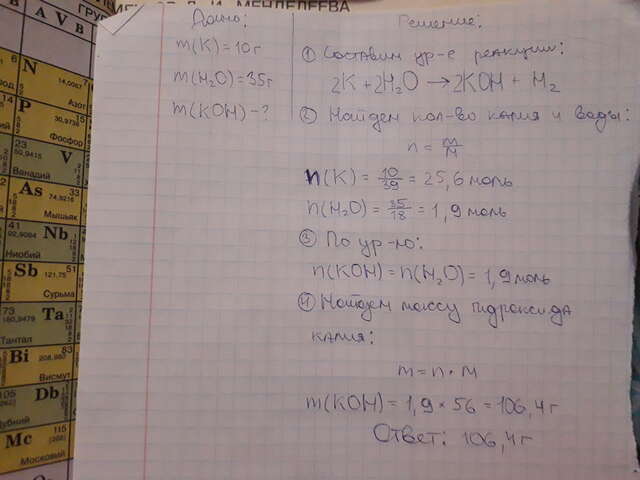 ГРУП
Д. И. МЕНДЕЛЕЕВА
A V B
Дано:
m(K) = 10 г
m(H2O) = 35 г
m(KOH) - ?
Решение:
① Составим ур-е реакции:
2K + 2H2O → 2KOH + H2
② Найдем кол-во калия и воды:
n = m/M
n(K) = 10/39 = 25,6 моль
n(H2O) = 35/18 = 1,9 моль
③ По ур-ю:
n(KOH) = n(H2O) = 1,9 моль
④ Найдем массу гидроксида
калия:
m = n · M
m(KOH) = 1,9 × 56 = 106,4 г
Ответ: 106,4 г
N
14,0067
Азот
P
30,9738
Фосфор
23
50,9415
V
Ванадий
As
33
74,9216
Мышьяк
41
92,9064
Nb
Ниобий
Sb
51
121,75
Сурьма
73
180,9479
Ta
Тантал
Bi
83
208,980
Висмут
105
[262]
Db
Дубний
Mc
115
[288]
Московий